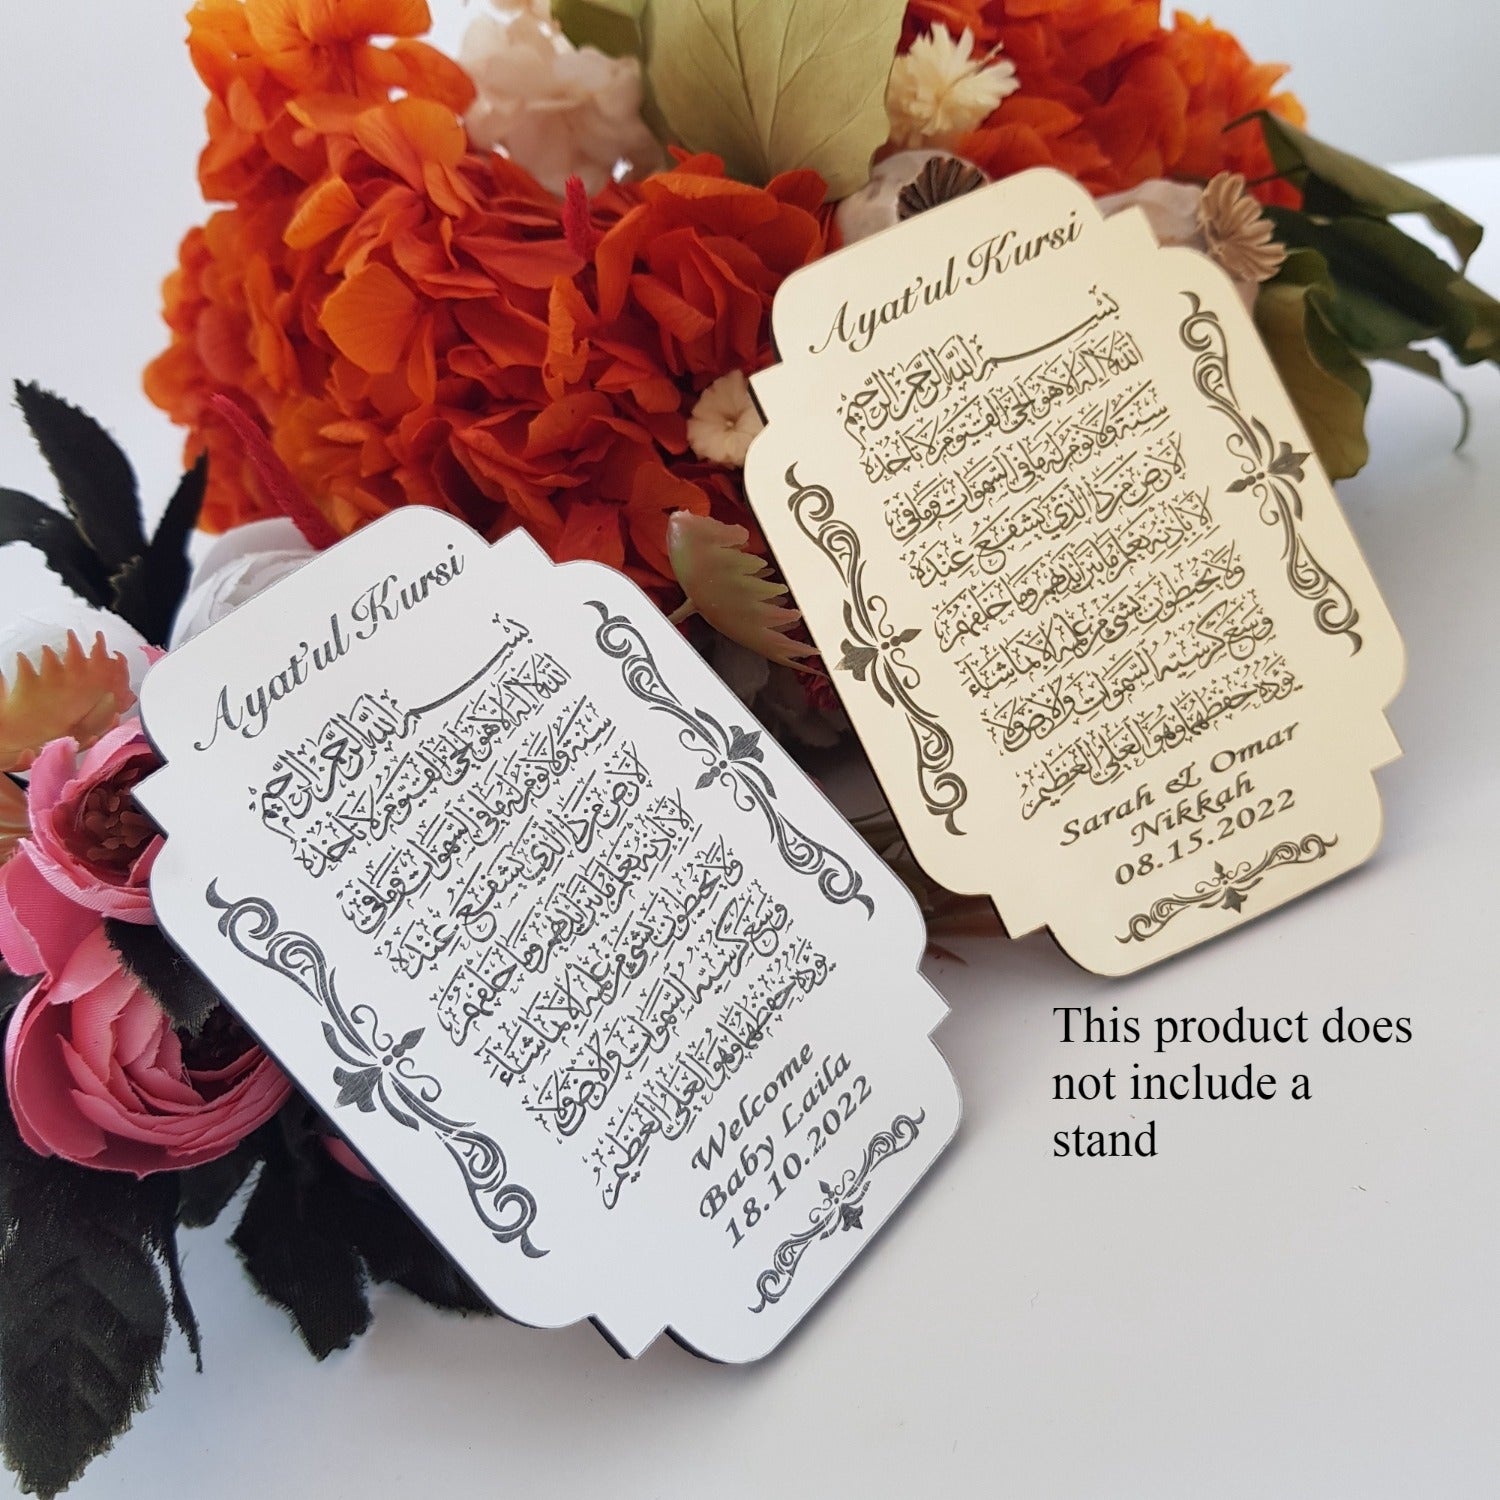 Ayat'ul Kursi
بسم الله الرحمن الرحيم
الله لا اله الا هو الحي القيوم لا تأخذه
سنة ولا نوم له ما في السموات وما في
الارض من ذا الذي يشفع عنده
الا باذنه يعلم ما بين ايديهم وما خلفهم
ولا يحيطون بشيء من علمه الا بما شاء
وسع كرسيه السموات والارض ولا
يؤده حفظهما وهو العلي العظيم
Welcome
Baby Laila
18.10.2022
Ayat'ul Kursi
بسم الله الرحمن الرحيم
الله لا اله الا هو الحي القيوم لا تأخذه
سنة ولا نوم له ما في السموات وما في
الارض من ذا الذي يشفع عنده
الا باذنه يعلم ما بين ايديهم وما خلفهم
ولا يحيطون بشيء من علمه الا بما شاء
وسع كرسيه السموات والارض ولا
يؤده حفظهما وهو العلي العظيم
Sarah & Omar
Nikkah
08.15.2022
This product does
not include a
stand